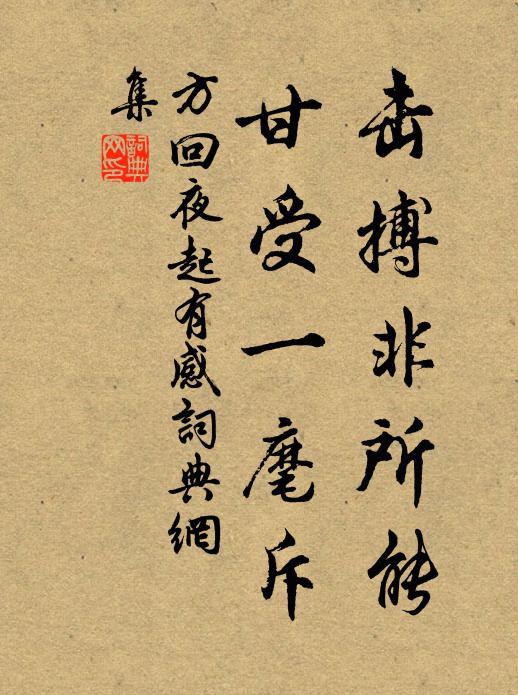 击搏非所能
甘受一麾斥
方回夜起有感詞典網
集
詞典
网印